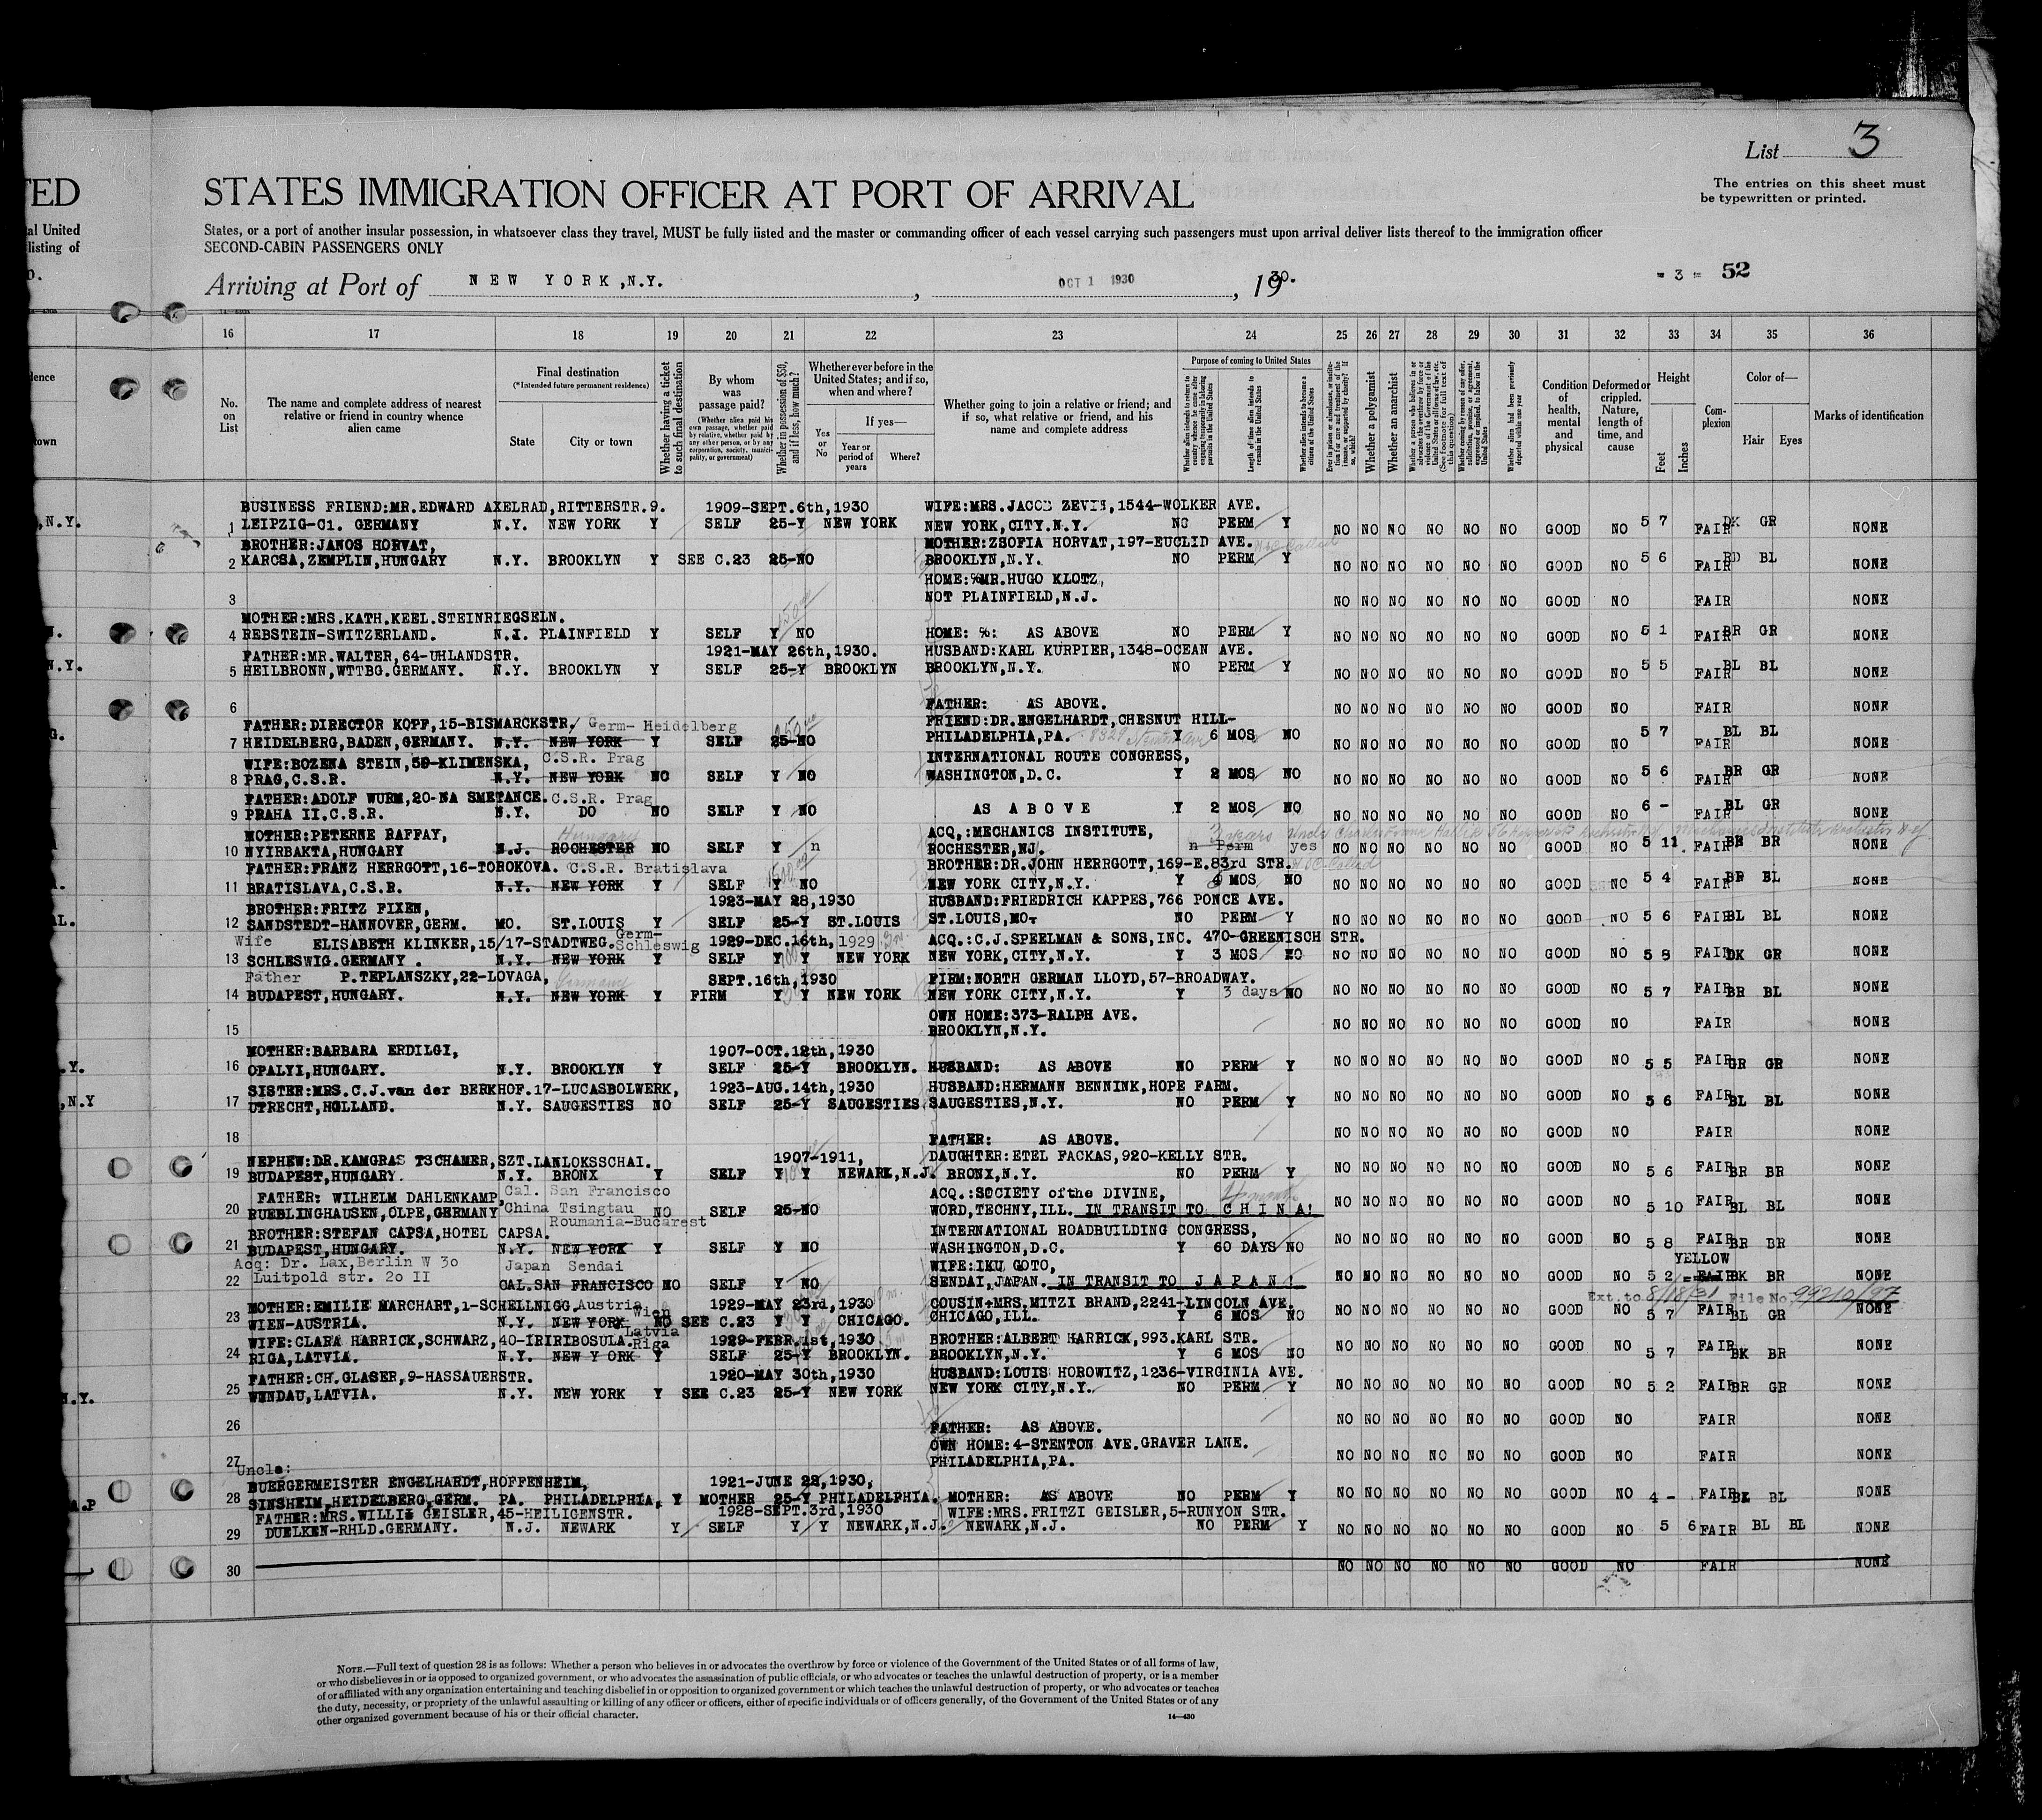 List 3
The entries on this sheet must
be typewritten or printed.
TED
STATES IMMIGRATION OFFICER AT PORT OF ARRIVAL
al United
listing of
States, or a port of another insular possession, in whatsoever class they travel, MUST be fully listed and the master or commanding officer of each vessel carrying such passengers must upon arrival deliver lists thereof to the immigration officer
SECOND-CABIN PASSENGERS ONLY
Arriving at Port of NEW YORK,N.Y. , OCT 1 1930 , 1930.
- 3 - 52
16 17 18 19 20 21 22 23 24 25 26 27 28 29 30 31 32 33 34 35 36
No. on List
The name and complete address of nearest relative or friend in country whence alien came
Final destination
(*Intended future permanent residence)
State
City or town
Whether having a ticket to such final destination
By whom was passage paid?
(Whether alien paid his own passage, whether paid by relative, whether paid by any other person, or by any corporation, society, municipality, or government)
Whether in possession of $50, and if less, how much?
Whether ever before in the United States; and if so, when and where?
Yes or No
If yes—
Year or period of years
Where?
Whether going to join a relative or friend; and if so, what relative or friend, and his name and complete address
Purpose of coming to United States
Length of time alien intends to remain in the United States
Whether alien intends to become a citizen of the United States
Whether a polygamist
Whether an anarchist
Condition of health, mental and physical
Deformed or crippled. Nature, length of time, and cause
Height
Feet
Inches
Complexion
Color of—
Hair
Eyes
Marks of identification
BUSINESS FRIEND:MR.EDWARD AXELRAD,RITTERSTR.9. 1909-SEPT.6th,1930 WIFE:MRS.JACOB ZEVIN,1544-WOLKER AVE.
1 LEIPZIG-C1. GERMANY N.Y. NEW YORK Y SELF 25-Y NEW YORK NEW YORK,CITY.N.Y. NO PERM Y NO NO NO NO NO NO GOOD NO 5 7 FAIR DK GR NONE
BROTHER:JANOS HORVAT, MOTHER:ZSOFIA HORVAT,197-EUCLID AVE.
2 KARCSA,ZEMPLIN,HUNGARY N.Y. BROOKLYN Y SEE C.23 25-NO BROOKLYN,N.Y. NO PERM Y NO NO NO NO NO NO GOOD NO 5 6 FAIR RD BL NONE
HOME:%MR.HUGO KLOTZ,
3 NOT PLAINFIELD,N.J. NO NO NO NO NO NO GOOD NO FAIR NONE
MOTHER:MRS.KATH.KEEL.STEINRIEGSELN.
4 REBSTEIN-SWITZERLAND. N.J. PLAINFIELD Y SELF Y NO HOME: %: AS ABOVE NO PERM Y NO NO NO NO NO NO GOOD NO 5 1 FAIR BR GR NONE
FATHER:MR.WALTER,64-UHLANDSTR. 1921-MAY 26th,1930. HUSBAND:KARL KURPIER,1348-OCEAN AVE.
5 HEILBRONN,WTTBG.GERMANY. N.Y. BROOKLYN Y SELF 25-Y BROOKLYN BROOKLYN,N.Y. NO PERM Y NO NO NO NO NO NO GOOD NO 5 5 FAIR BL BL NONE
6 FATHER: AS ABOVE. NO NO NO NO NO NO GOOD NO FAIR NONE
FATHER:DIRECTOR KOPF,15-BISMARCKSTR/ Germ- Heidelberg FRIEND:DR.ENGELHARDT,CHESNUT HILL-
7 HEIDELBERG,BADEN,GERMANY. N.Y. NEW YORK Y SELF 25-NO PHILADELPHIA,PA. 8329 Y 6 MOS NO NO NO NO NO NO NO GOOD NO 5 7 FAIR BL BL NONE
WIFE:BOZENA STEIN,59-KLIMENSKA, C.S.R. Prag INTERNATIONAL ROUTE CONGRESS,
8 PRAG,C.S.R. N.Y. NEW YORK NO SELF Y NO WASHINGTON,D.C. Y 2 MOS NO NO NO NO NO NO NO GOOD NO 5 6 FAIR BR GR NONE
FATHER:ADOLF WURM,20-NA SMETANCE. C.S.R. Prag
9 PRAHA II.C.S.R. N.Y. DO NO SELF Y NO AS ABOVE Y 2 MOS NO NO NO NO NO NO NO GOOD NO 6 - FAIR BL GR NONE
MOTHER:PETERNE BAFFAY, Hungary ACQ,:MECHANICS INSTITUTE, 3 years
10 NYIRBAKTA,HUNGARY N.J. ROCHESTER NO SELF Y n ROCHESTER,NJ. n Perm yes NO NO NO NO NO NO GOOD NO 5 11 FAIR BR BR NONE
FATHER:FRANZ HERRGOTT,16-TOROKOVA. C.S.R. Bratislava BROTHER:DR.JOHN HERRGOTT,169-E.83rd STR.
11 BRATISLAVA,C.S.R. N.Y. NEW YORK Y SELF Y NO NEW YORK CITY,N.Y. Y MOS NO NO NO NO NO NO NO GOOD NO 5 4 FAIR BR BL NONE
BROTHER:FRITZ FIXEN, 1923-MAY 28,1930 HUSBAND:FRIEDRICH KAPPES,766 PONCE AVE.
12 SANDSTEDT-HANNOVER,GERM. MO. ST.LOUIS Y SELF 25-Y ST.LOUIS ST.LOUIS,MO. NO PERM Y NO NO NO NO NO NO GOOD NO 5 6 FAIR BL BL NONE
Wife ELISABETH KLINKER,15/17-STADTWEG. Germ-Schleswig 1929-DEC.16th,1929 ACQ.:C.J.SPEELMAN & SONS,INC. 470-GREENISCH STR.
13 SCHLESWIG.GERMANY . N.Y. NEW YORK Y SELF Y Y NEW YORK NEW YORK,CITY,N.Y. Y 3 MOS NO NO NO NO NO NO NO GOOD NO 5 8 FAIR DK GR NONE
Father P.TEPLANSZKY,22-LOVAGA, Germany SEPT.16th,1930 FIRM:NORTH GERMAN LLOYD,57-BROADWAY.
14 BUDAPEST,HUNGARY. N.Y. NEW YORK Y FIRM Y Y NEW YORK NEW YORK CITY,N.Y. Y 3 days NO NO NO NO NO NO NO GOOD NO 5 7 FAIR BR BL NONE
OWN HOME:373-RALPH AVE.
15 BROOKLYN,N.Y. NO NO NO NO NO NO GOOD NO FAIR NONE
MOTHER:BARBARA ERDILGI, 1907-OCT.12th,1930
16 OPALYI,HUNGARY. N.Y. BROOKLYN Y SELF 25-Y BROOKLYN. HUSBAND: AS ABOVE NO PERM Y NO NO NO NO NO NO GOOD NO 5 5 FAIR GR GR NONE
SISTER:MRS.C.J.van der BERKHOF.17-LUCASBOLWERK, 1923-AUG.14th,1930 HUSBAND:HERMANN BENNINK,HOPE FARM.
17 UTRECHT,HOLLAND. N.Y. SAUGESTIES NO SELF 25-Y SAUGESTIES SAUGESTIES,N.Y. NO PERM Y NO NO NO NO NO NO GOOD NO 5 6 FAIR BL BL NONE
18 FATHER: AS ABOVE. NO NO NO NO NO NO GOOD NO FAIR NONE
NEPHEW:DR.KAMGRAS TSCHAMER,SZT.LANLOKSSCHAI. 1907-1911, DAUGHTER:ETEL FACKAS,920-KELLY STR.
19 BUDAPEST,HUNGARY. N.Y. BRONX Y SELF Y Y NEWARK,N.J. BRONX,N.Y. NO PERM Y NO NO NO NO NO NO GOOD NO 5 6 FAIR BR BR NONE
FATHER: WILHELM DAHLENKAMP, Cal. San Francisco ACQ.:SOCIETY ofthe DIVINE,
20 RUEBLINGHAUSEN,OLPE,GERMANY China Tsingtau NO SELF 25-NO WORD,TECHNY,ILL. IN TRANSIT TO CHINA! NO NO NO NO NO NO GOOD NO 5 10 FAIR BL BL NONE
BROTHER:STEFAN CAPSA,HOTEL CAPSA. Roumania-Bucarest INTERNATIONAL ROADBUILDING CONGRESS,
21 BUDAPEST,HUNGARY. N.Y. NEW YORK Y SELF Y NO WASHINGTON,D.C. Y 60 DAYS NO NO NO NO NO NO NO GOOD NO 5 8 FAIR BR BR NONE
Acq: Dr. Lax,Berlin W 30 Japan Sendai WIFE:IKU GOTO, YELLOW
22 Luitpold str. 2o II CAL.SAN FRANCISCO NO SELF Y NO SENDAI,JAPAN. IN TRANSIT TO JAPAN! NO NO NO NO NO NO GOOD NO 5 2 FAIR BK BR NONE
Ext.to 8/18/31 File No. 99210/97
MOTHER:EMILIE MARCHART,1-SCHELLNIGG. Austria Wien 1929-MAY 23rd,1930 COUSIN:MRS.MITZI BRAND,2241-LINCOLN AVE.
23 WIEN-AUSTRIA. N.Y. NEW YORK NO SEE C.23 Y Y CHICAGO. CHICAGO,ILL. Y 6 MOS NO NO NO NO NO NO NO GOOD NO 5 7 FAIR BL GR NONE
WIFE:CLARA HARRICK,SCHWARZ,40-IRIRIBOSULA. Latvia Riga 1929-FEBR.1st,1930. BROTHER:ALBERT HARRICK,993.KARL STR.
24 RIGA,LATVIA. N.Y. NEW Y ORK Y SELF 25-Y BROOKLYN. BROOKLYN,N.Y. Y 6 MOS NO NO NO NO NO NO NO GOOD NO 5 7 FAIR BK BR NONE
FATHER:CH.GLASER,9-HASSAUERSTR. 1920-MAY 30th,1930 HUSBAND:LOUIS HOROWITZ,1236-VIRGINIA AVE.
25 WINDAU,LATVIA. N.Y. NEW YORK Y SEE C.23 25-Y NEW YORK NEW YORK CITY,N.Y. NO PERM Y NO NO NO NO NO NO GOOD NO 5 2 FAIR BR GR NONE
26 FATHER: AS ABOVE. NO NO NO NO NO NO GOOD NO FAIR NONE
OWN HOME:4-STENTON AVE.GRAVER LANE.
27 PHILADELPHIA,PA. NO NO NO NO NO NO GOOD NO FAIR NONE
Uncle:
BUERGERMEISTER ENGELHARDT,HOFFENHEIM, 1921-JUNE 22,1930,
28 SINSHEIM,HEIDELBERG,GERM. PA. PHILADELPHIA, Y MOTHER 25-Y PHILADELPHIA. MOTHER: AS ABOVE NO PERM Y NO NO NO NO NO NO GOOD NO 4 - FAIR BL BL NONE
FATHER:MRS.WILLI GEISLER,45-HEILIGENSTR. 1928-SEPT.3rd,1930 WIFE:MRS.FRITZI GEISLER,5-RUNYON STR.
29 DUELKEN-RHLD.GERMANY. N.J. NEWARK Y SELF Y Y NEWARK,N.J. NEWARK,N.J. NO PERM Y NO NO NO NO NO NO GOOD NO 5 6 FAIR BL BL NONE
30 NO NO NO NO NO NO GOOD NO FAIR NONE
NOTE.—Full text of question 28 is as follows: Whether a person who believes in or advocates the overthrow by force or violence of the Government of the United States or of all forms of law,
or who disbelieves in or is opposed to organized government, or who advocates the assassination of public officials, or who advocates or teaches the unlawful destruction of property, or is a member
of or affiliated with any organization entertaining and teaching disbelief in or opposition to organized government or which teaches the unlawful destruction of property, or who advocates or teaches
the duty, necessity, or propriety of the unlawful assaulting or killing of any officer or officers, either of specific individuals or of officers generally, of the Government of the United States or of any
other organized government because of his or their official character.
14—430